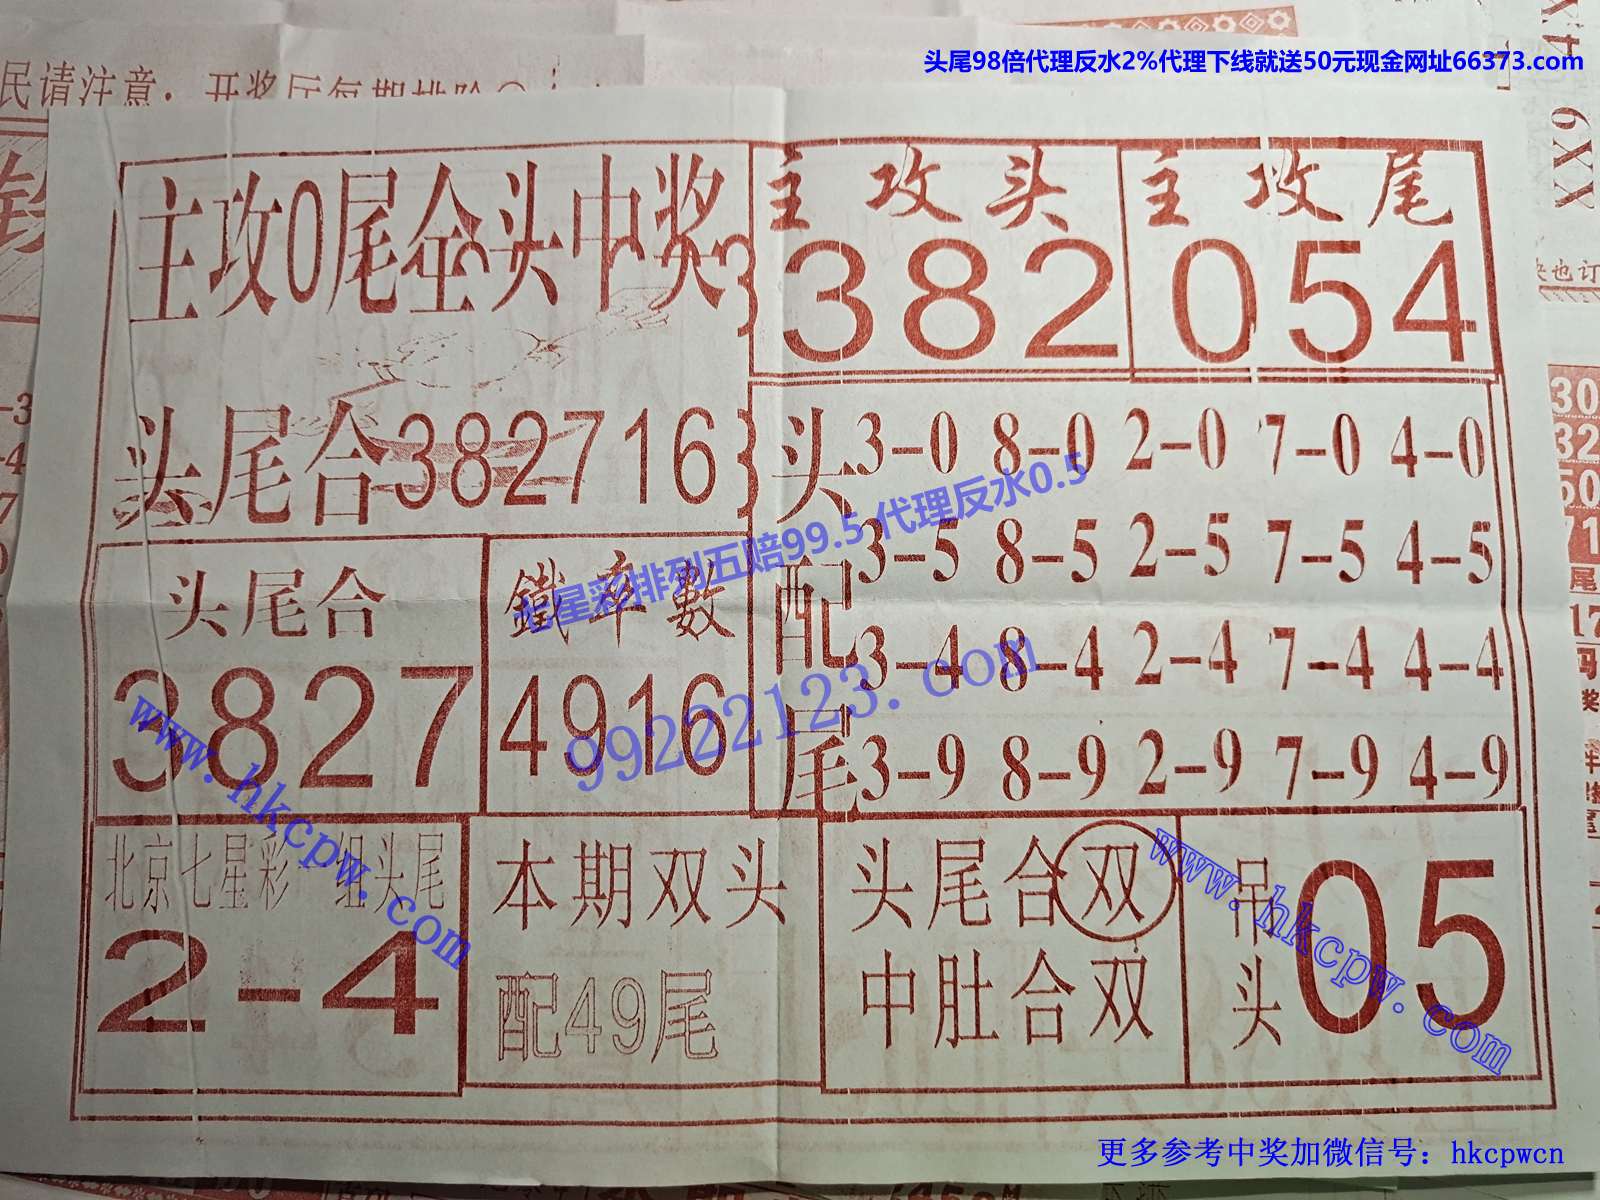 头尾98倍代理反水2%代理下线就送50元现金网址66373.com
民请注意，开奖历每期排险
主攻0尾全头中奖
主攻头
382
主攻尾
054
头尾合382716
头配尾
3-0 8-0 2-0 7-0 4-0
3-5 8-5 2-5 7-5 4-5
3-4 8-4 2-4 7-4 4-4
3-9 8-9 2-9 7-9 4-9
七星彩排列五赔99.5 代理反水0.5
99222123.com
头尾合
3827
鐵率數
4916
www.hkcpw.com
北京七星彩一组头尾
2-4
本期双头
配49尾
头尾合双
中肚合双
吊头
05
www.hkcpw.com
6XX
央也订
30
32
50
71
尾
17
码
更多参考中奖加微信号：hkcpwcn